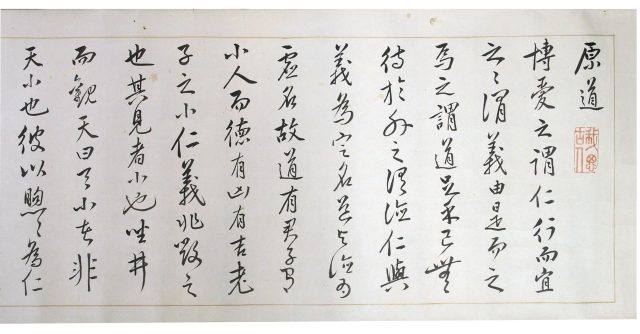 原道
博愛之謂仁行而宜
之〻謂義由是而之
焉之謂道足乎己無
待於外之謂德仁與
義為定名道與德為
虛名故道有君子有
小人而德有凶有吉老
子之小仁義非毀之
也其見者小也坐井
而觀天曰天小者非
天小也彼以煦〻為仁